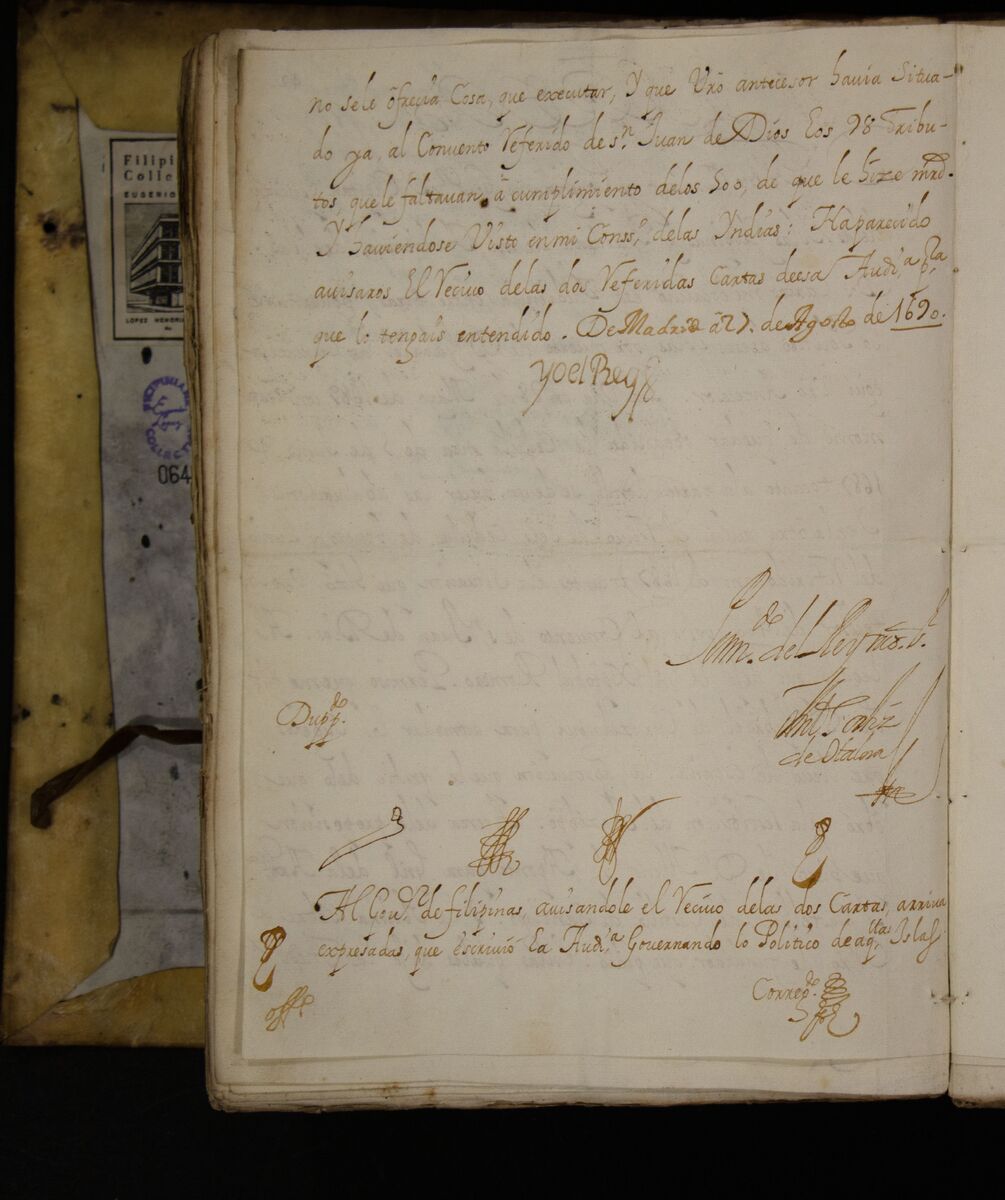 no se le ofrecia Cosa, que executar, Y que Vro antecesor havia Situa-
do ya, al Convento Referido de Sn. Juan de Dios Los 98 Tribu-
tos, que le faltavan, a cumplimiento delos 500, de que le hize mrd.
Y haviendose Visto en mi Conss.o delas Yndias: Ha parecido
avisaros El Recivo delas dos Referidas Cartas de esa Audi.a pra
que lo tengais entendido. De Madrid a 27. de Agosto de 1690.
Yo el Rey
Por mdo. del Rey nro. sr.
Antt.o Ortiz
de Otalora
Dupp.do
Al Gov.or de filipinas, avisandole el Recivo delas dos Cartas, arriva
expresadas, que escrivio La Audi.a Governando lo Politico de aqtas Islas
Correg.do
off.o
Filipi
Colle
EUGENIO
LOPEZ MEMORI
FILIPINIANA
COLLEC
064